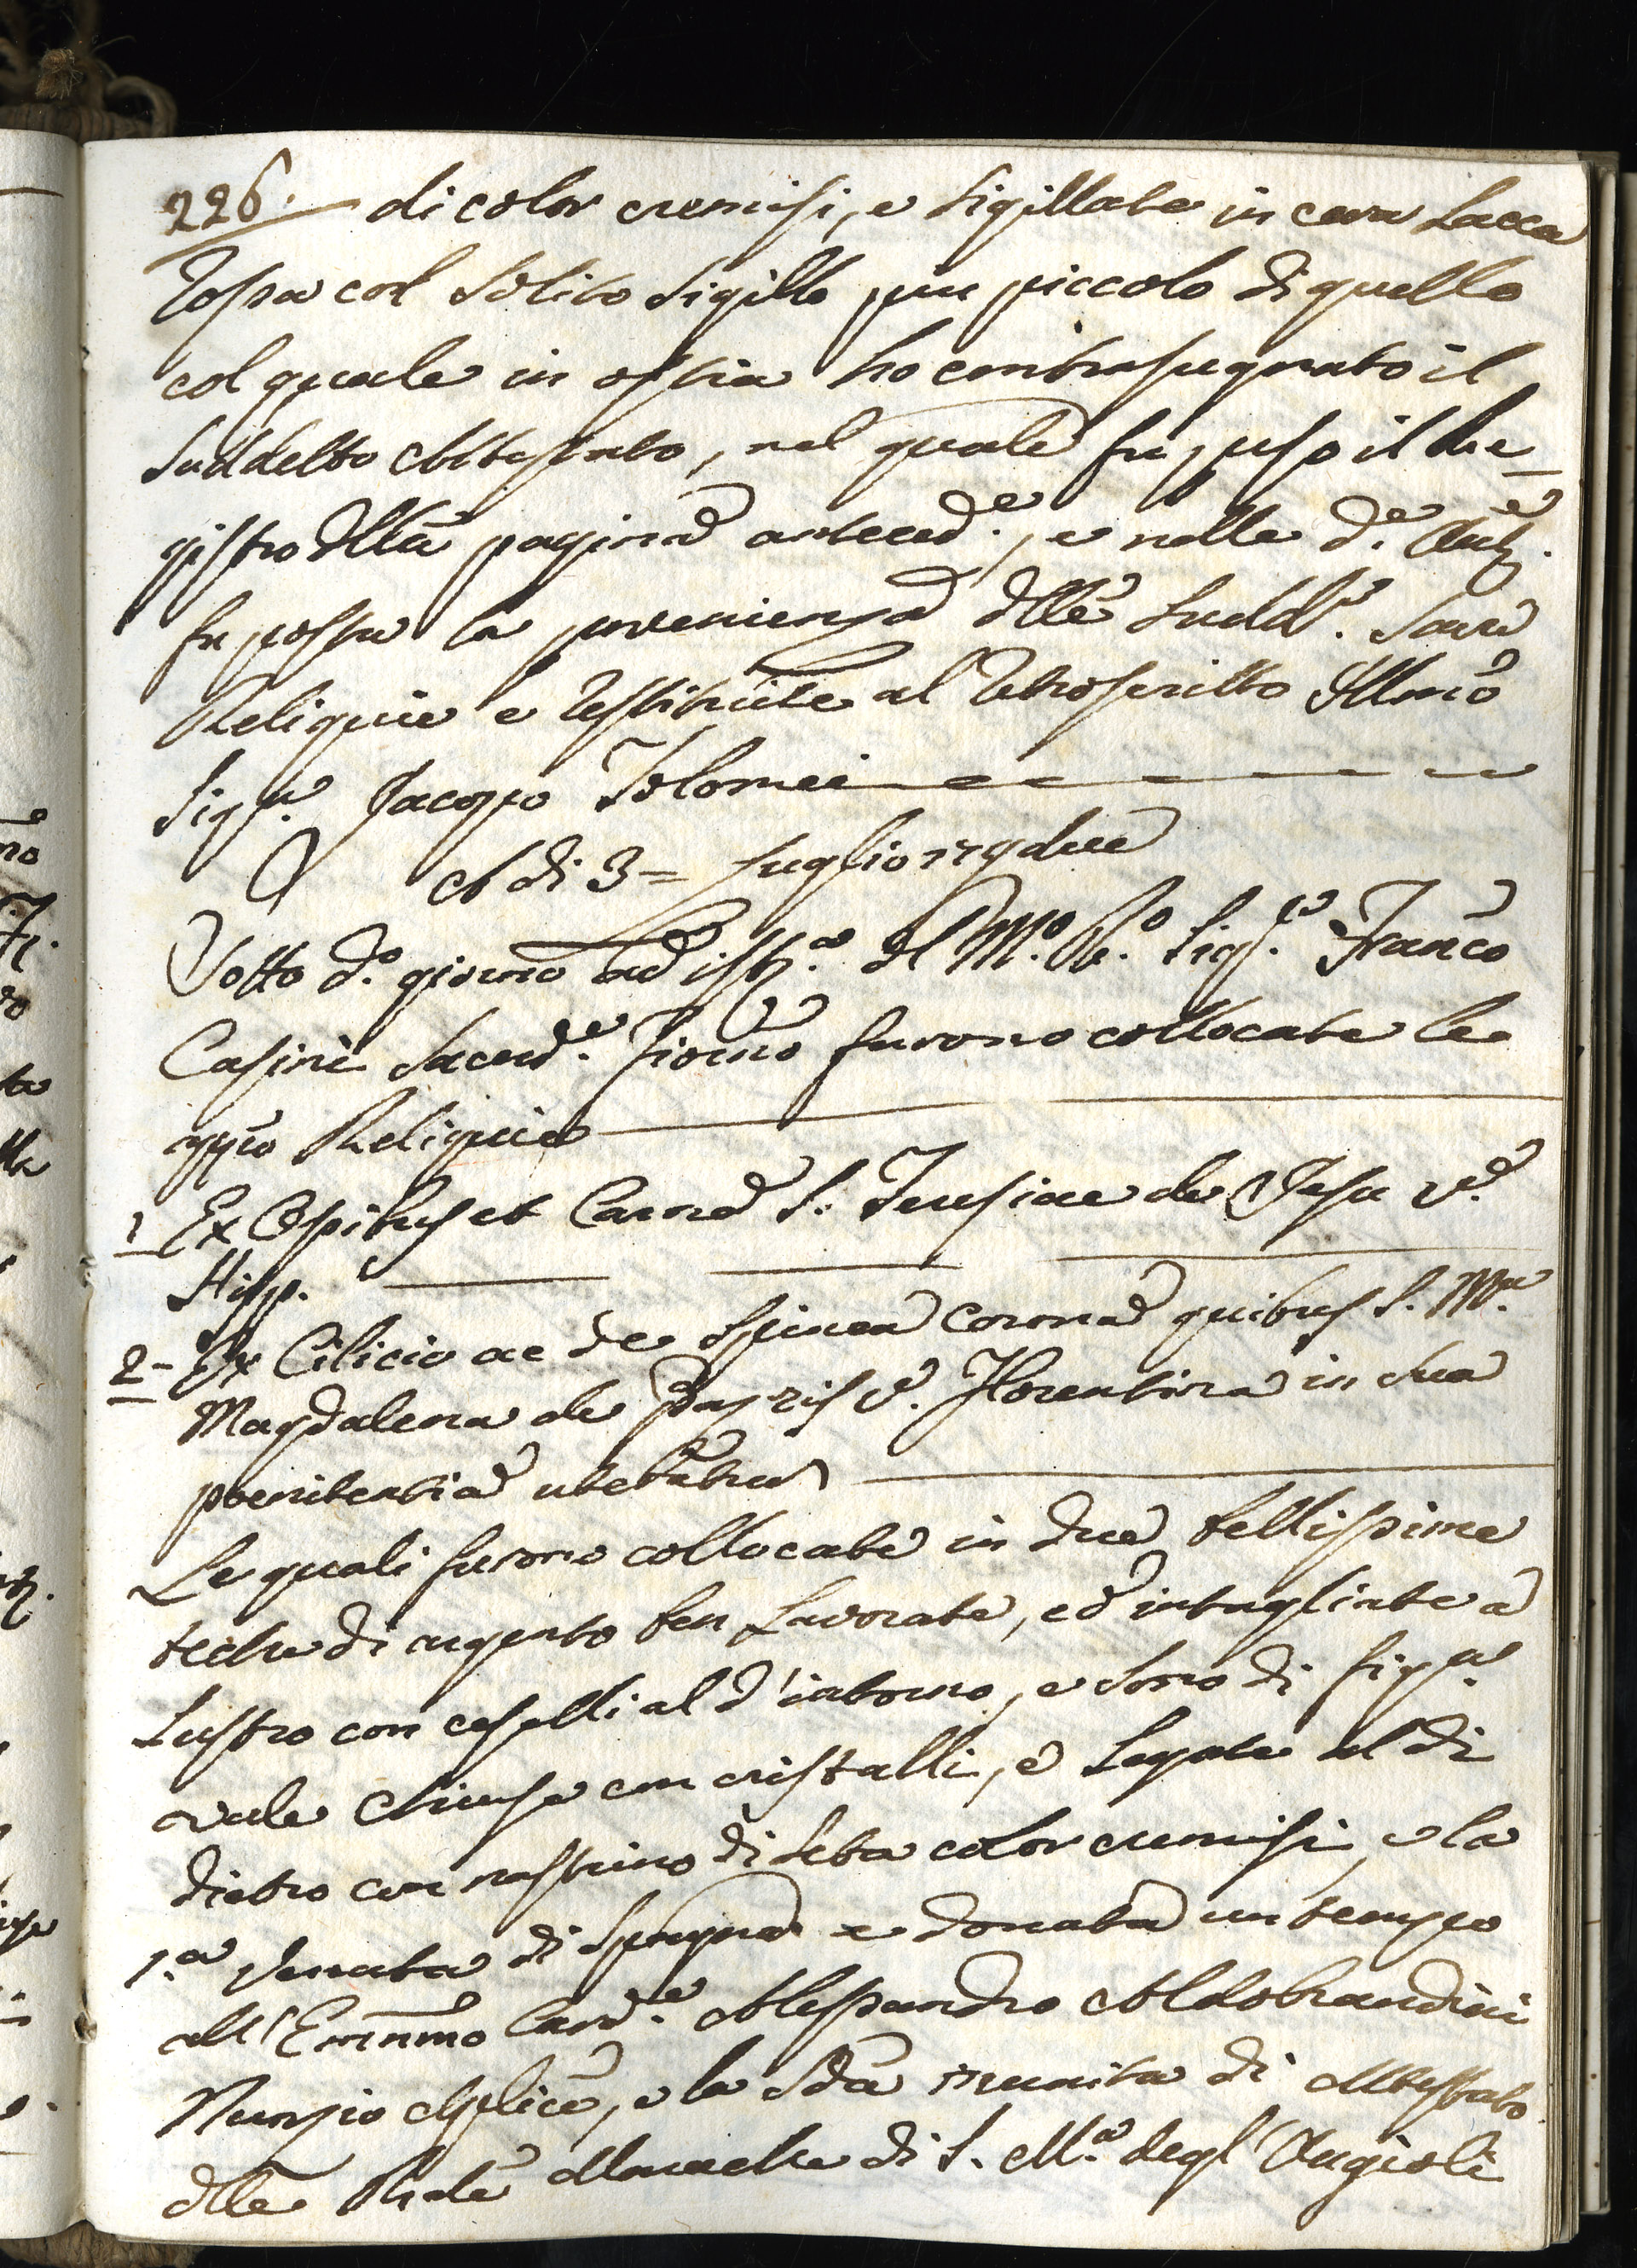 226. di color cremisi, e sigillate in cera Lacca
rossa col solito sigillo piu piccolo di quello
col quale in ostia ho contrasegnato il
suddetto Attestato, nel quale fu preso il Re-
gistro dlla pagina anteced.e, e nelle d.e Aut.e
fu posta la provenienza dlle sudd.e Sacre
Reliquie e restituite al retroscritto Illmo
Sig.re Jacopo Tolomei
A di 3 = Luglio 179due
Sotto d.o giorno ad ist.a dl M.o R.o Sig.re Franco
Casini Sacerd.e Fiorno furono collocate le
appo Reliquie
1 Ex Ossibus et Carne S. Teresiae de Jesu V.
Hisp.
2- Ex Cilicio ac de spinea corona quibus S. M.a
Magdalena de Pazzis V. Florentina in sua
poenitentia utebatur
Le quali furono collocate in due bellissime
teche di argento ben Lavorate, ed intagliate a
Lustro con ceselli al d'intorno, e sono di fig.a
ovale chiuse con cristalli, e Legate al di
dietro con nastrino di seta color cremisi, e la
1.a venuta di Spagna e donata un tempo
all'Eminmo Card.e Alessandro Aldobrandini
Nunzio Aplico, e la Sda munita di Attestato
dlle Rnde Monache di S. M.a degl'Angioli